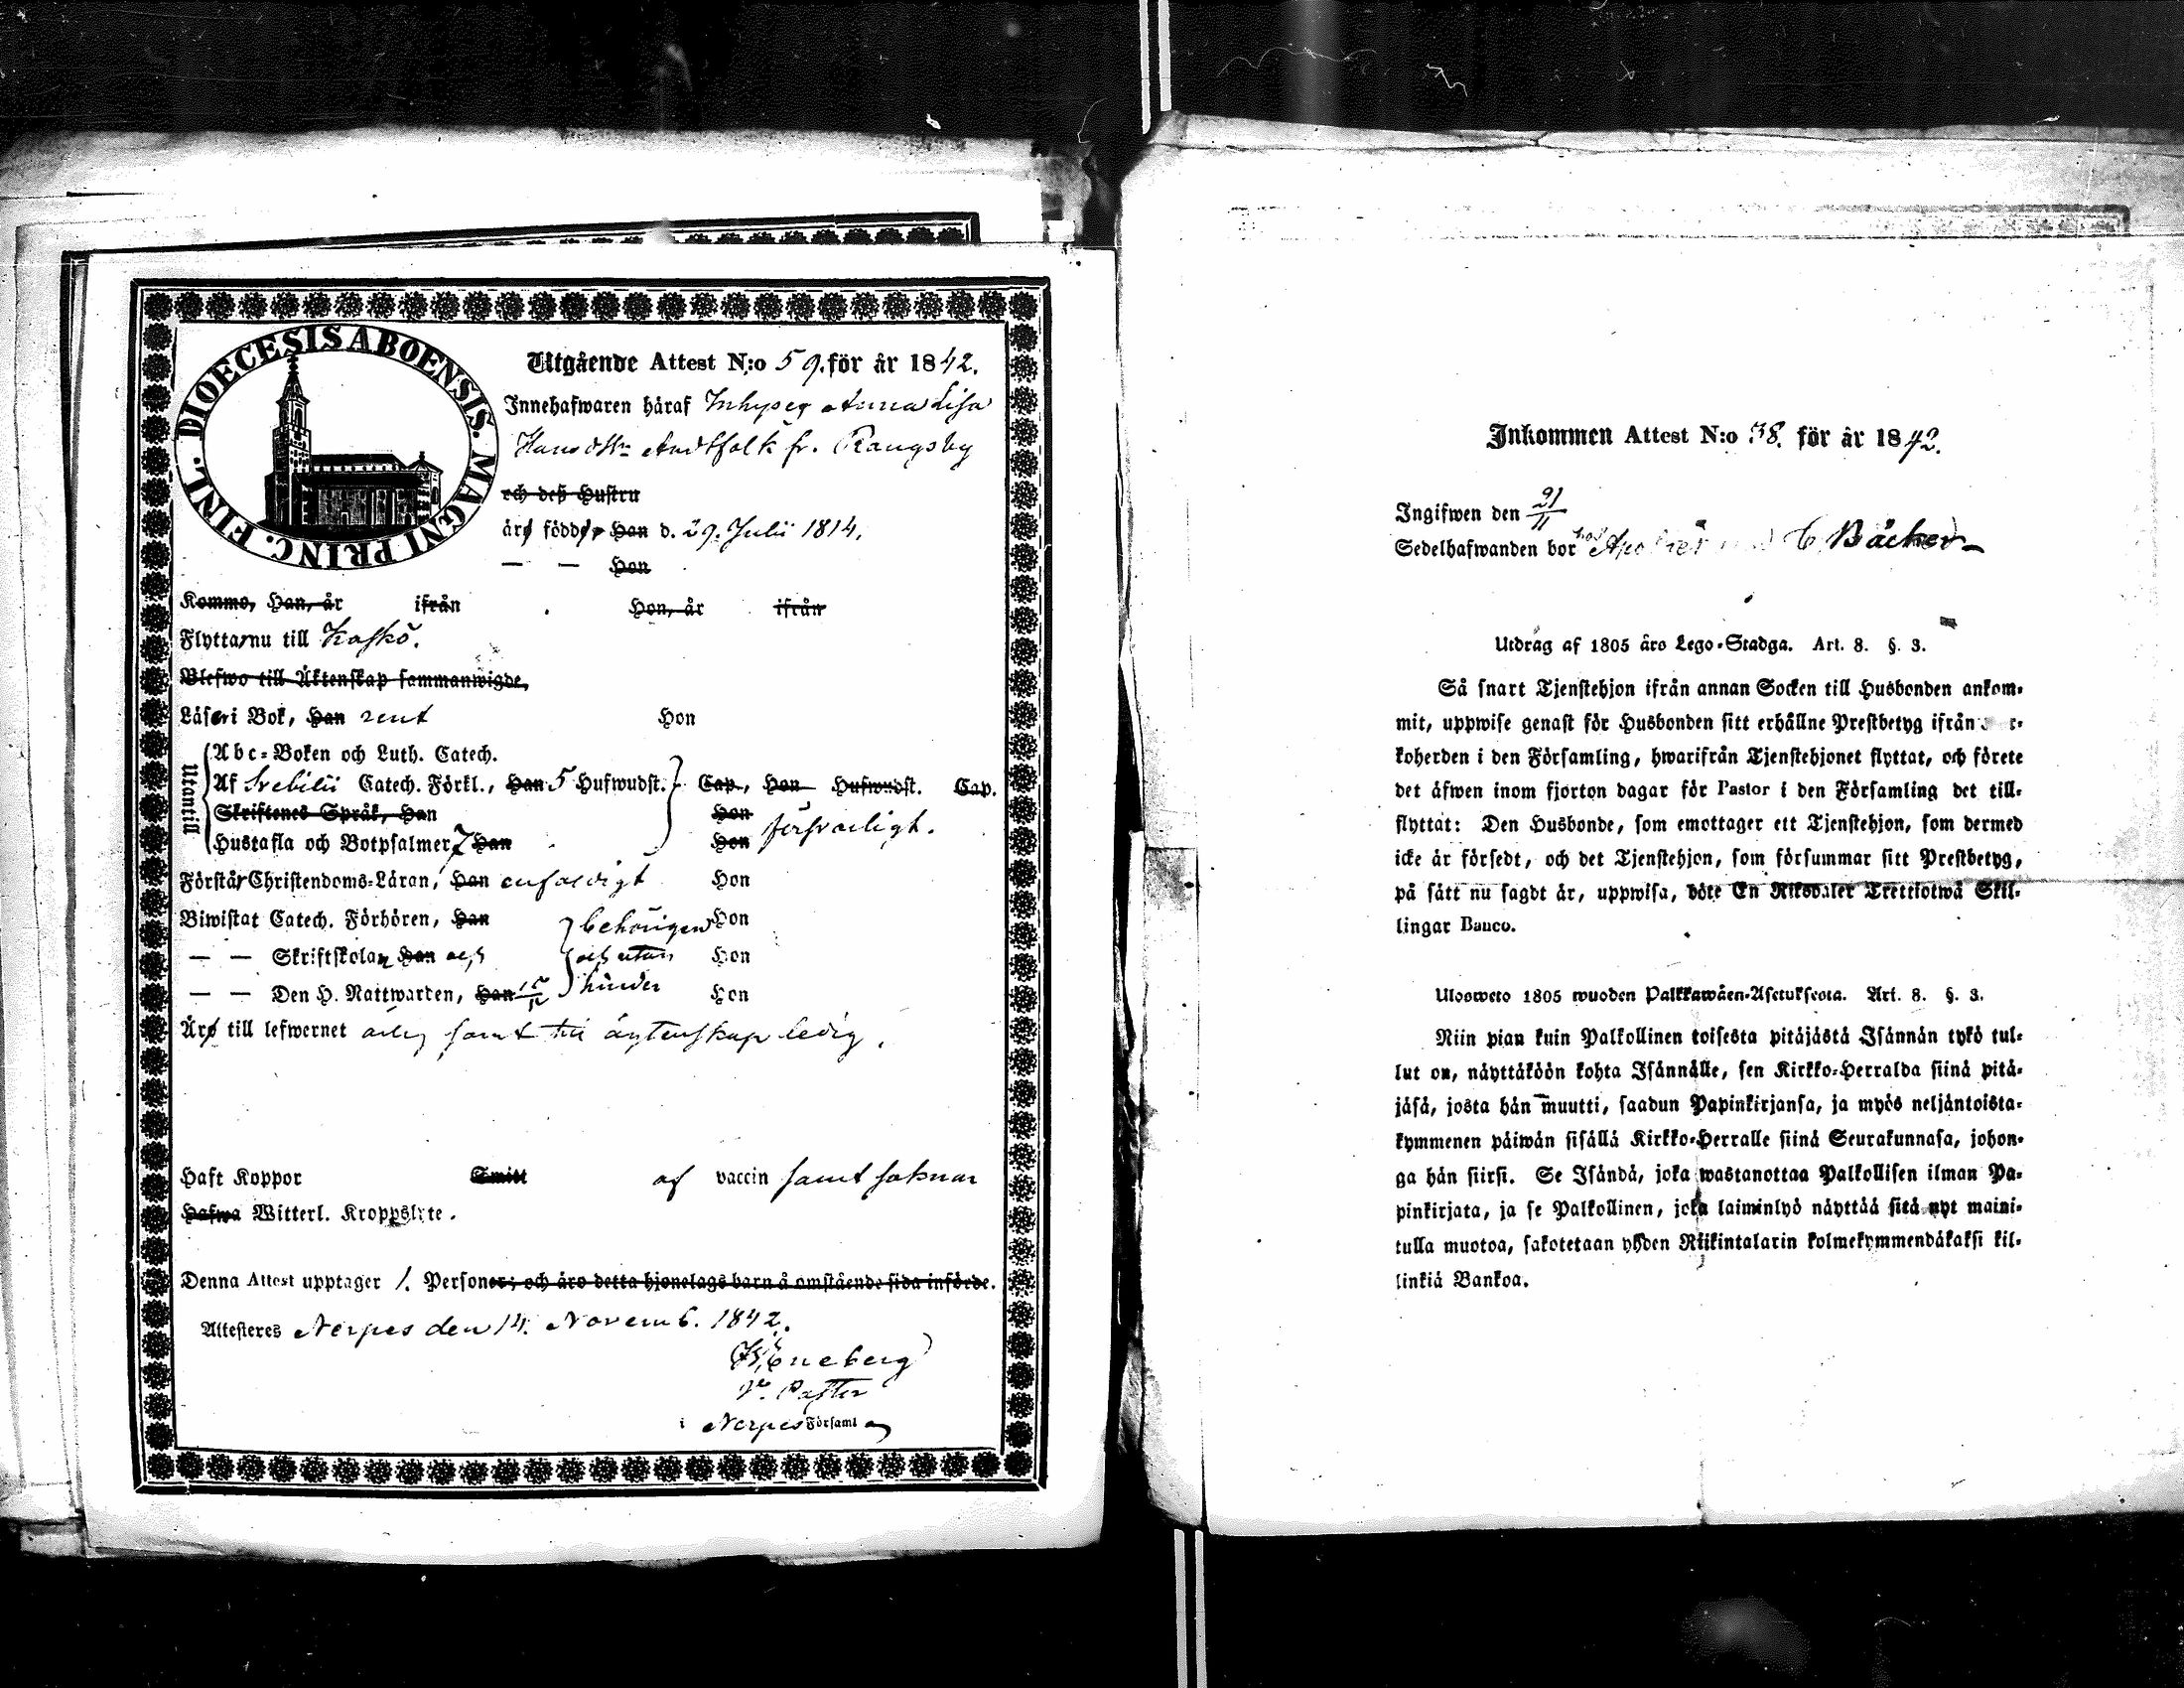 DIOECESIS ABOENSIS. MAGNI PRINC. FINL.
Utgående Attest N:o 59. för år 1842.
Innehafwaren häraf Inhyses Anna Lisa
Hansdtr Andtfolk fr. Rangsby
och deß Hustru
äro födde, Han d. 29. Julii 1814.
— — Hon
Kommo, Han, år ifrån Hon, år ifrån
Flytta nu till Kaskö.
Blefwo till Äktenskap sammanwigde,
Läser i Bok, Han rent Hon
Utantill
Abc-Boken och Luth. Catech.
Af Svebilii Catech. Förkl., Han 5 Hufwudst. Cap., Hon Hufwudst. Cap.
Skriftenes Språk, Han Hon
Hustafla och Botpsalmer 7 Han Hon försvarligt.
Förstår Christendoms-Läran, Han enfaldigt Hon
Biwistat Catech. Förhören, Han behörigen Hon
— — Skriftskolan Han och utan Hon
— — Den H. Nattwarden, Han hinder Hon
Äro till lefwernet ärlig samt till äktenskap ledig.
Haft Koppor Smitt af vaccin samt saknar
Hafwa Witterl. Kroppslyte.
Denna Attest upptager 1. Personer; och äro detta hjonelags barn å omstående sida införde.
Attesteres Nerpes den 14. Novemb. 1842.
Eneberg
Pastor
i Nerpes Församl
Inkommen Attest N:o 38. för år 1842.
Ingifwen den 21/11
Sedelhafwanden bor hos Bäcker
Utdrag af 1805 års Lego-Stadga. Art. 8. §. 3.
Så snart Tjenstehjon ifrån annan Socken till Husbonden ankom-
mit, uppwise genast för Husbonden sitt erhållne Prestbetyg ifrån
koherden i den Församling, hwarifrån Tjenstehjonet flyttat, och förete
det äfwen inom fjorton dagar för Pastor i den Församling det till-
flyttat: Den Husbonde, som emottager ett Tjenstehjon, som dermed
icke är försedt, och det Tjenstehjon, som försummar sitt Prestbetyg,
på sätt nu sagdt är, uppwisa, böte En Riksdaler Trettiotwå Skil-
lingar Banco.
Ulosweto 1805 wuoden Palkkawäen-Asetuksesta. Art. 8. §. 3.
Niin pian kuin Palkollinen toisesta pitäjästä Isännän tykö tul-
lut on, näyttäköön kohta Isännälle, sen Kirkko-Herralda siinä pitä-
jäsä, josta hän muutti, saadun Papinkirjansa, ja myös neljäntoista-
kymmenen päiwän sisällä Kirkko-Herralle siinä Seurakunnasa, johon-
ga hän siirsi. Se Isändä, joka wastanottaa Palkollisen ilman Pa-
pinkirjata, ja se Palkollinen, joka laiminlyö näyttää sitä nyt maini-
tulla muotoa, sakotetaan yhden Riikintalarin kolmekymmendäkaksi kil-
linkiä Bankoa.